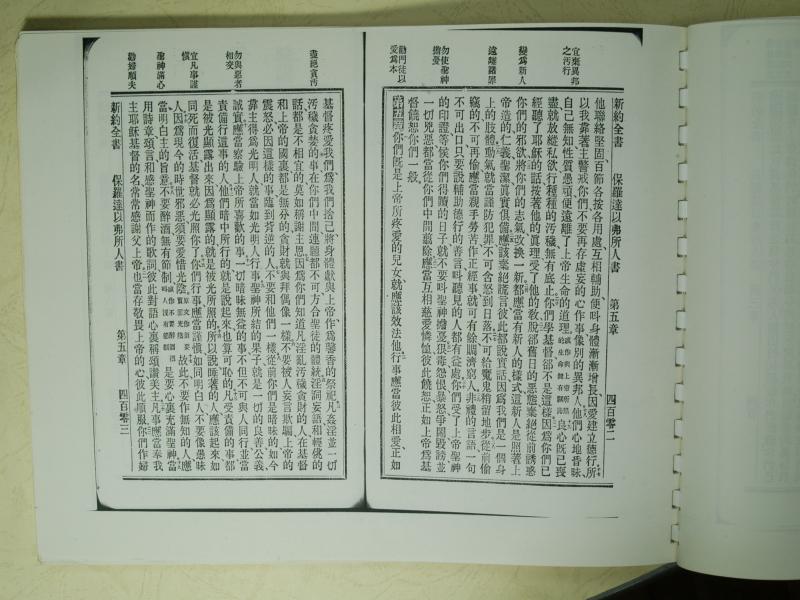 宜棄異邦
之污行
變爲新人
遠離諸罪
勿使聖神
擔憂
勸門徒以
愛爲本
新約全書 保羅達以弗所人書 第五章 四百零二
他聯絡堅固百節各按各用處互相輔助便呌身體漸漸增長因愛建立德行所
以我靠著主警戒你們不要再存虛妄的心作事像別的異邦人他們心地昏昧
自己無知性質愚頑便遠離了上帝生命的道理良心旣已喪
盡就放縱私欲行種種的汚穢無有底止你們學基督卻不是這樣因爲你們已
經聽了耶穌的話按著他的眞理受了他的敎脫卻舊日的惡態棄絕從前誘惑
你們的邪欲將你們的志氣改換一新都應當有新人的樣式這新人是照著上
帝造的仁義聖潔眞實俱備應該棄絕謊言彼此都說實話因爲我們是一個身
上的肢體動氣就當謹防犯罪不可含怒到日落不可給魔鬼稍留地步從前偷
竊的不可再偷應當親手勞苦作正經事就可有餘賙濟窮人非禮的言語一句
不可出口只要說輔助德行的善言呌聽見的人都有益處你們受了上帝聖神
的印證等侯你們得贖的日子就不要呌聖神擔憂狠毒怨恨暴怒爭鬧毀謗並
一切兇惡都當從你們中間翦除應當互相慈愛憐恤彼此饒恕正如上帝爲基
督饒恕你們一般
第五章你們旣是上帝所疼愛的兒女就應該效法他行事應當彼此相愛正如
盡絕貪汚
勿與惡者
相交
宜凡事謹
愼
聖神滿心
勸婦順夫
基督疼愛我們爲我們捨己將身體獻與上帝作爲馨香的祭祀凡姦淫並一切
汚穢貪婪的事在你們中間連題都不可方合聖徒的體統淫詞妄語和輕佻的
話都是不相宜的莫如稱謝主恩因爲你們知道凡淫亂汚穢貪財的人在基督
和上帝的國裏都是無分的貪財就與拜偶像一樣不要被人妄言欺騙上帝的
震怒必因這樣的事臨到背逆的人不要和他們一樣從前你們是暗昧的如今
靠主得爲光明人就當如光明人行事聖神所結的果子就是一切的良善公義
誠實應當察驗上帝所喜歡的事一切暗昧無益的事不但不可與人同行並當
責備行這事的人他們暗中所行的就是說起來也算可恥的凡受責備的事都
是被光顯露出來因爲顯露的就是被光所照的所以說睡著的人應該起來如
同死而復活基督就必光照你了你們行事應當謹愼如同明白人不要像愚昧
人因爲現今的時世邪惡須要愛惜光陰故此不要作無知的人應
當明白主的旨意不要醉酒無有節制是要心裏充滿聖神當
用詩章頌言和感聖神而作的歌詞彼此對語心裏稱頌讚美主凡事應當奉我
主耶穌基督的名常常感謝父上帝也當存敬畏上帝的心彼此順服你們作婦
新約全書 保羅達以弗所人書 第五章 四百零三